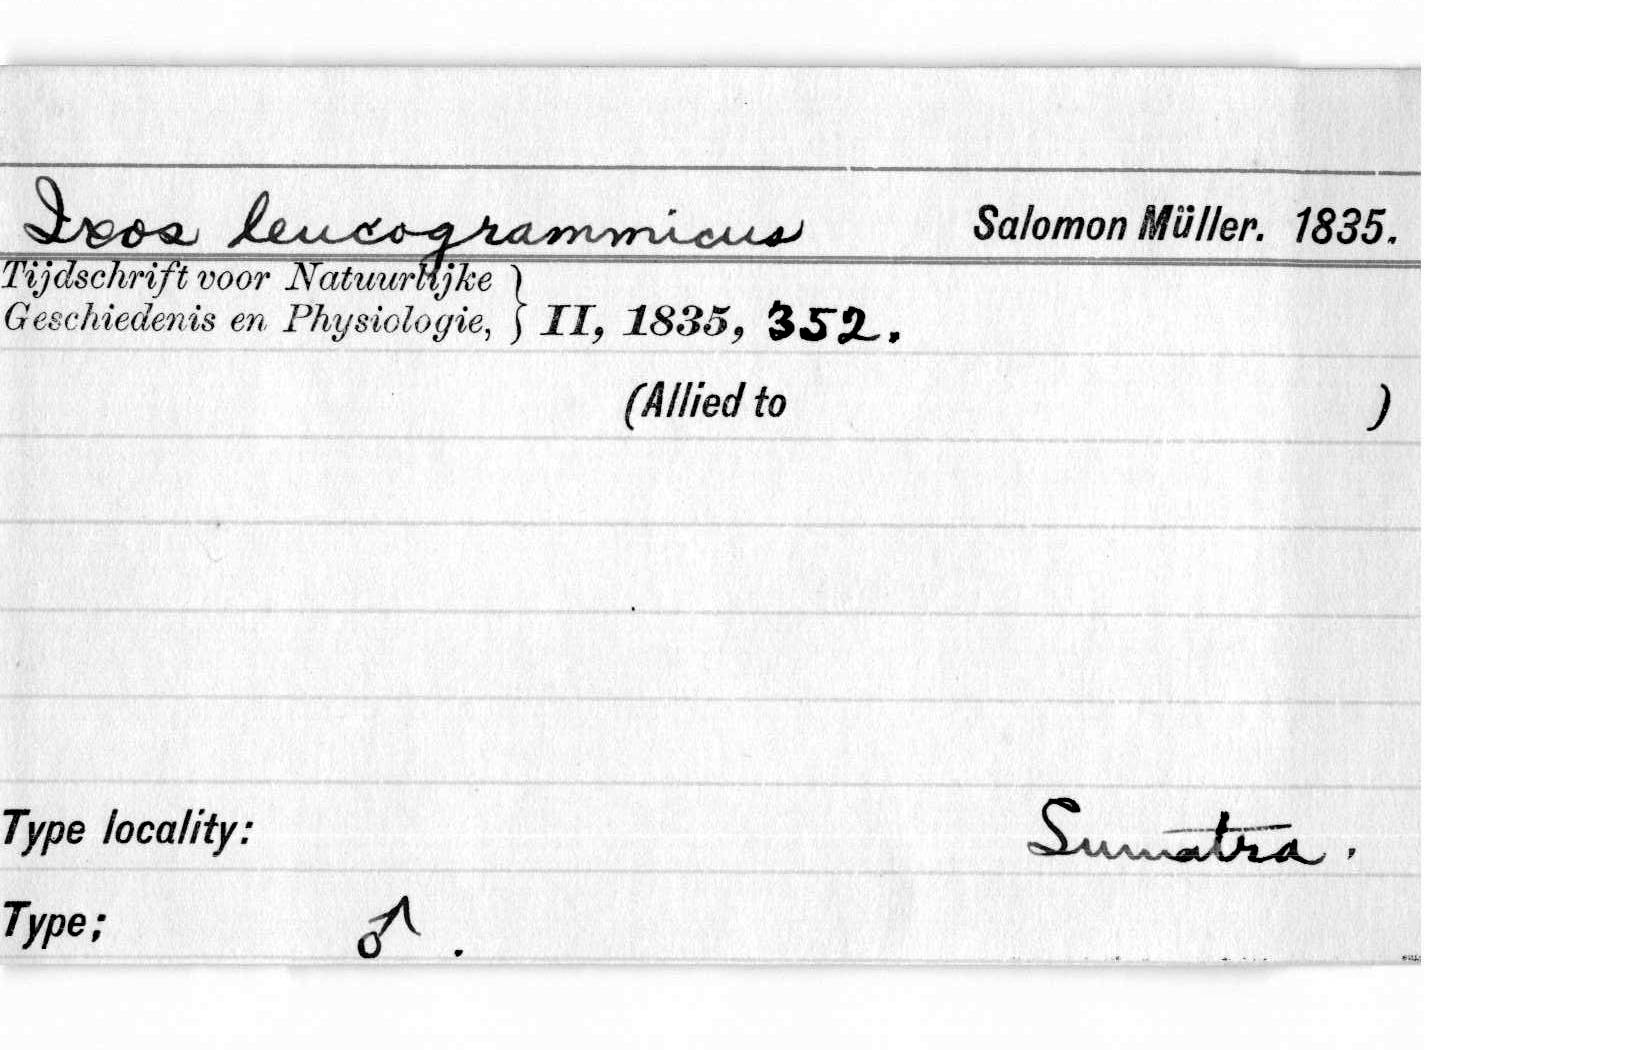 Ixos leucogrammicus Salomon Müller. 1835.
Tijdschrift voor Natuurlijke }
Geschiedenis en Physiologie, } II, 1835, 352.
(Allied to )
Type locality: Sumatra.
Type; ♂.